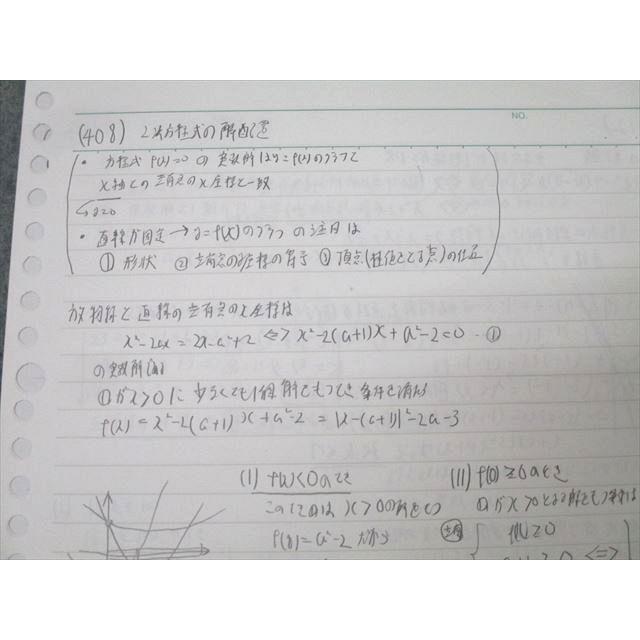 NO.
(408) 2次方程式の解の配置
・方程式 f(x)=0 の実数解は y=f(x)のグラフと
x軸との共有点のx座標と一致
y=0
・直線が固定→y=f(x)のグラフの注目は
① 形状 ② 共有点のy座標の符号 ③ 頂点(極値とる点)の位置
放物線と直線の共有点のx座標は
x²-2ax=2x-a²+2 ⇔ x²-2(a+1)x+a²-2=0 …①
の実数解
①がx>0に少なくとも1個 解をもつとき 条件を満たす
f(x)=x²-2(a+1)x+a²-2={x-(a+1)}²-2a-3
(I) f(0)<0のとき
(II) f(0)≧0のとき
この2次は x>0の解をもつ
①がx>0となる解をもつ条件は
f(0)=a²-2 だから
f(0)≧0
≧0 ⇔